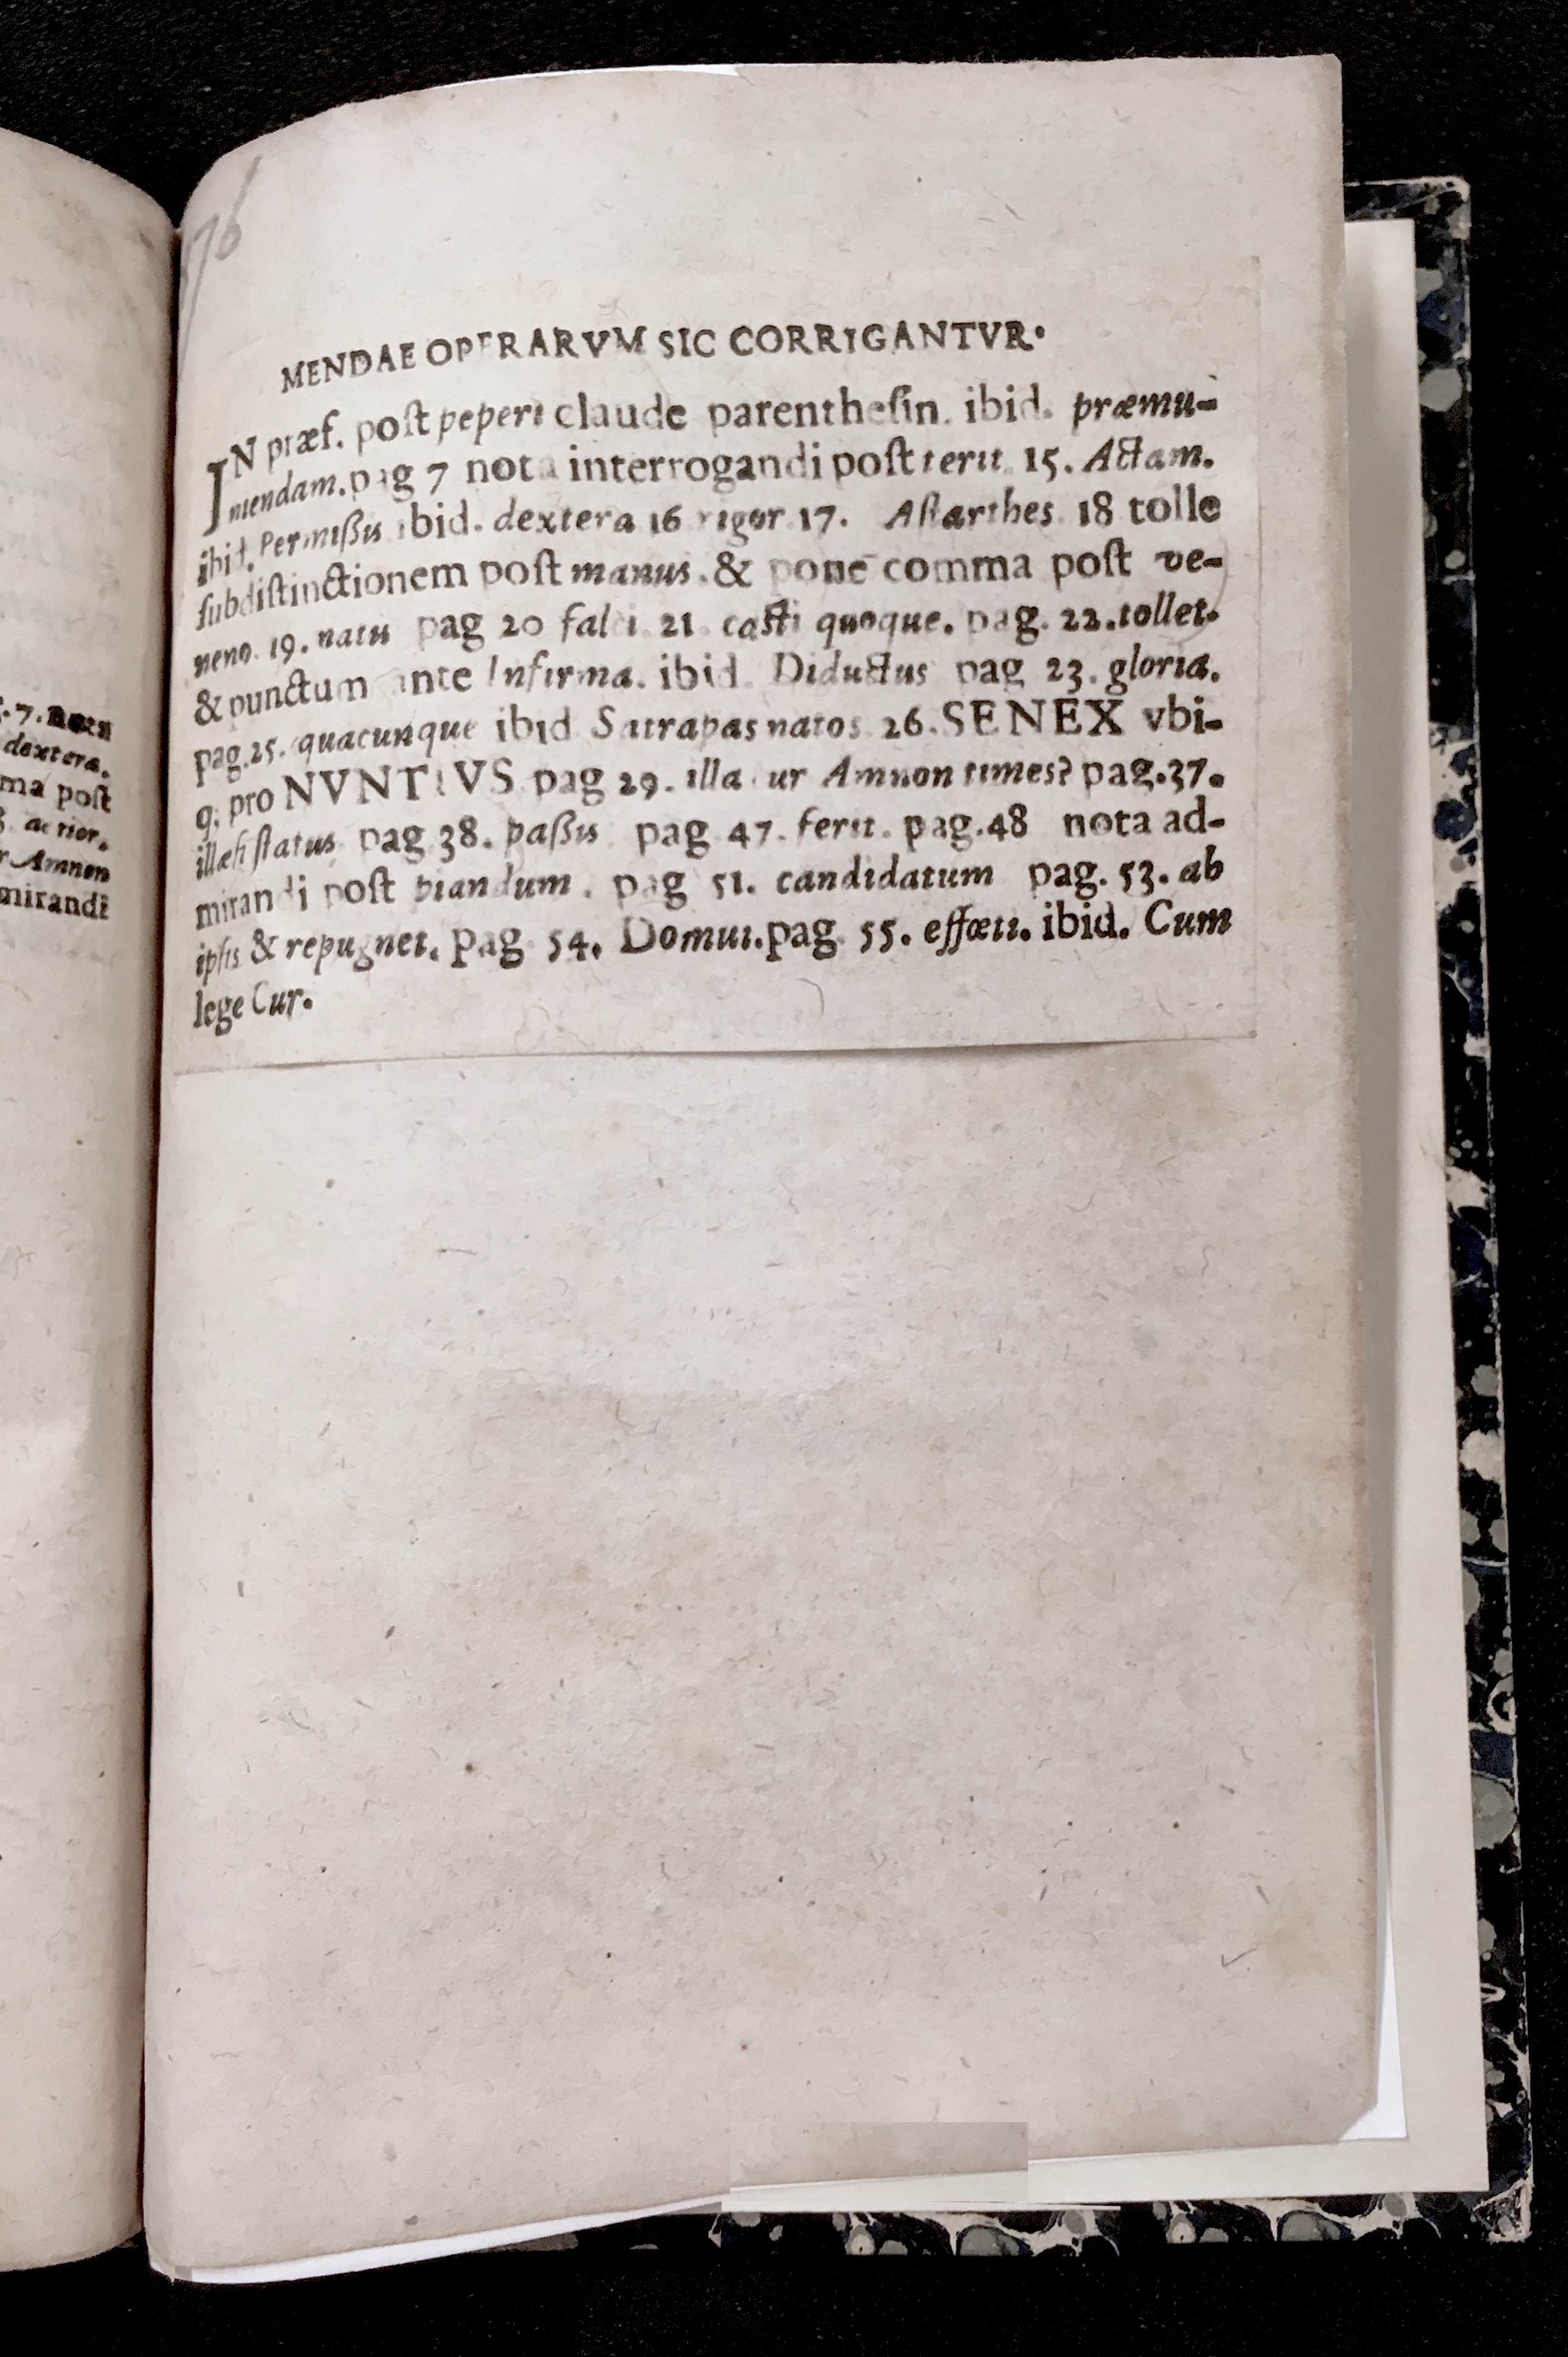 76
7.
dextera.
ma post
Amnon
mirandi
MENDAE OPERARVM SIC CORRIGANTVR.
IN præf. poſt peperi claude parentheſin. ibid. præmu-
niendam. pag 7 nota interrogandi poſt terit. 15. Actam.
ibid. Permißis ibid. dextera 16 rigor 17. Aſtarthes 18 tolle
ſubdiſtinctionem poſt manus. & pone comma poſt ve-
neno. 19. natu pag 20 falci 21 caſti quoque. pag. 22. tollet.
& punctum ante Infirma. ibid. Diductus pag 23. gloria.
pag. 25. quacunque ibid Satrapas natos 26. SENEX vbi-
q; pro NVNTIVS pag 29. illa ur Amnon times? pag. 37.
illæſi ſtatus pag 38. paßis pag 47. ferit. pag. 48 nota ad-
mirandi poſt piandum. pag 51. candidatum pag. 53. ab
ipſis & repugnet. pag 54. Domui. pag. 55. effœti. ibid. Cum
lege Cur.